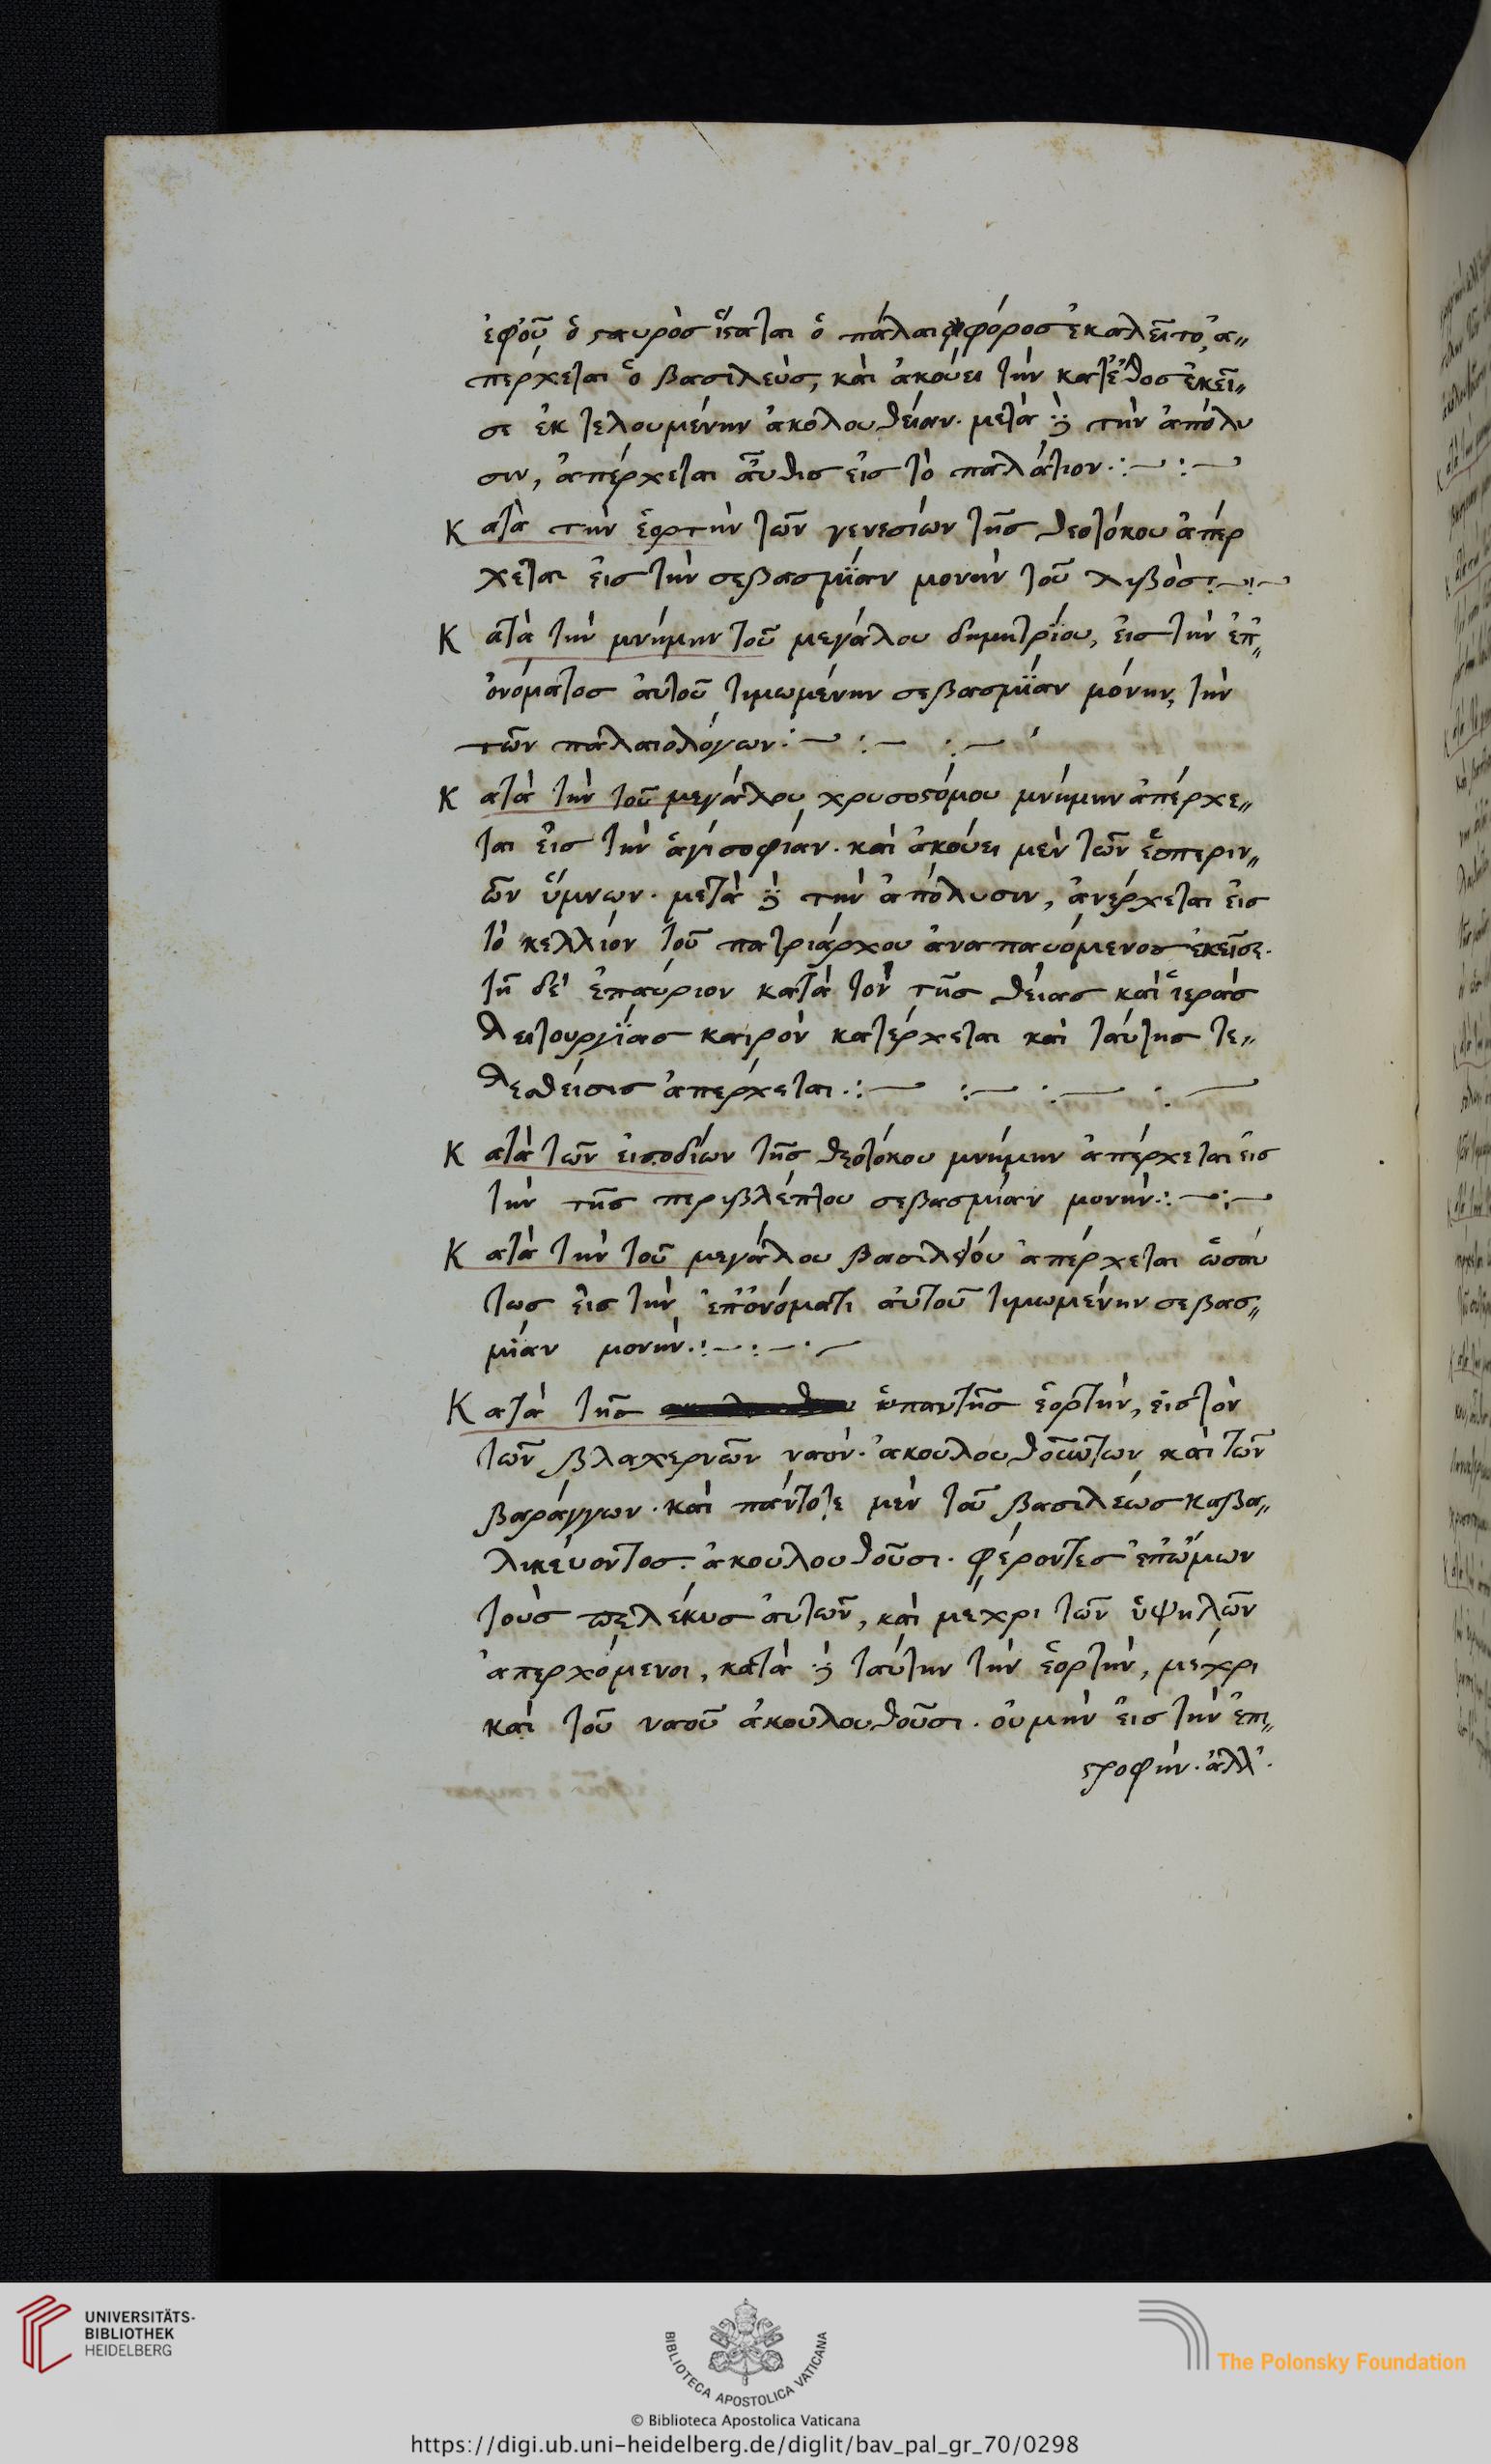 ἐφοῦ ὁ σαυρὸσ ἵσαται ὁ πάλαι φόροσ ἐκαλεῖτο, ἀ〃
πέρχεται ὁ βασιλεὺσ, καὶ ἀκούει τὴν κατἔθοσ ἐκεῖ〃
σε ἐκ τελουμένην ἀκολουθείαν. μετὰ δὲ τὴν ἀπόλυ
σιν, ἀπέρχεται αὖθισ εἰσ τὸ παλάτιον.:—:—
Κατὰ τὴν ἑορτὴν τῶν γενεσίων τῆσ θεοτόκου ἀπέρ
χεται εἰσ τὴν σεβασμΐαν μονὴν τοῦ λιβὸσ:—:—
Κατὰ τὴν μνήμην τοῦ μεγάλου δημητρΐου, εἰσ τὴν ἐπ〃
ὀνόματοσ ἀυτοῦ τιμωμένην σεβασμΐαν μόνην, τὴν
τῶν παλαιολόγων:— :— :—
Κατὰ τὴν τοῦ μεγάλου χρυσοστόμου μνήμην ἀπέρχε〃
ται εἰσ τὴν ἁγίσοφίαν. καὶ ἀκούει μὲν τῶν ἑσπεριν〃
ῶν ὕμνων. μετὰ δὲ τὴν ἀπόλυσιν, ἀνέρχεται εἰσ
τὸ κελλίον τοῦ πατριάρχου ἀναπαυόμενοσ ἐκεῖσε.
τῇ δὲ ἐπαύριον κατὰ τὸν τῆσ θείασ καὶ ἱερᾶσ
λειτουργΐασ καιρὸν κατέρχεται καὶ ταύτησ τε〃
λεσθείσισ ἀπέρχεται.:— :— :— :—
Κατὰ τῶν εἰσοδίων τῆσ θεοτόκου μνήμην ἀπέρχεται εἰσ
τὴν τῆσ περιβλέπτου σεβασμίαν μονὴν.:—:—
Κατὰ τὴν τοῦ μεγάλου βασιλείου ἀπέρχεται ὡσαύ
τωσ εἰσ τὴν ἐπὀνόματι ἀυτοῦ τιμωμένην σεβασ〃
μίαν μονὴν.:—:—.—
Κατὰ τῆσ ὑπαντῆσ ἑορτὴν, εἰσ τὸν
τῶν βλαχερνῶν ναὸν. ἀκουλουθούντων καὶ τῶν
βαράγγων. καὶ πάντοτε μὲν τοῦ βασιλέωσ καβα〃
λικέυοντοσ. ἀκουλουθοῦσι. φέροντεσ ἐπὤμων
τοὺσ πελέκυσ ἀυτῶν, καὶ μέχρι τῶν ὑψηλῶν
ἀπερχόμενοι, κατὰ δὲ ταύτην τὴν ἑορτὴν, μέχρι
καὶ τοῦ ναοῦ ἀκουλουθοῦσι. οὐ μὴν εἰσ τὴν ἐπι〃
στροφήν. ἀλλ'.
UNIVERSITÄTS-
BIBLIOTHEK
HEIDELBERG
BIBLIOTECA APOSTOLICA VATICANA
The Polonsky Foundation
© Biblioteca Apostolica Vaticana
https://digi.ub.uni-heidelberg.de/diglit/bav_pal_gr_70/0298